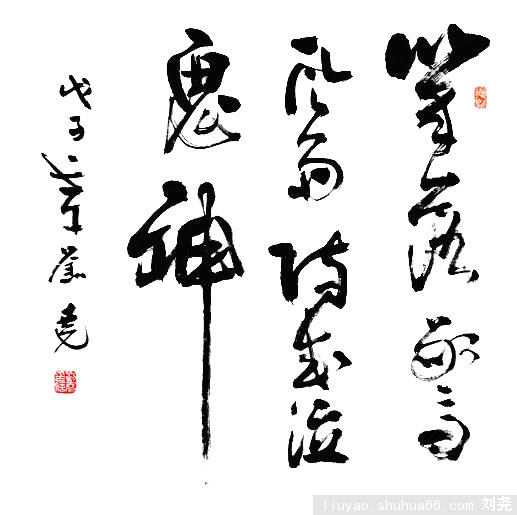 筆落驚
風雨詩成泣
鬼神
戊子年尧
liuyao.shuhua66.com 刘尧